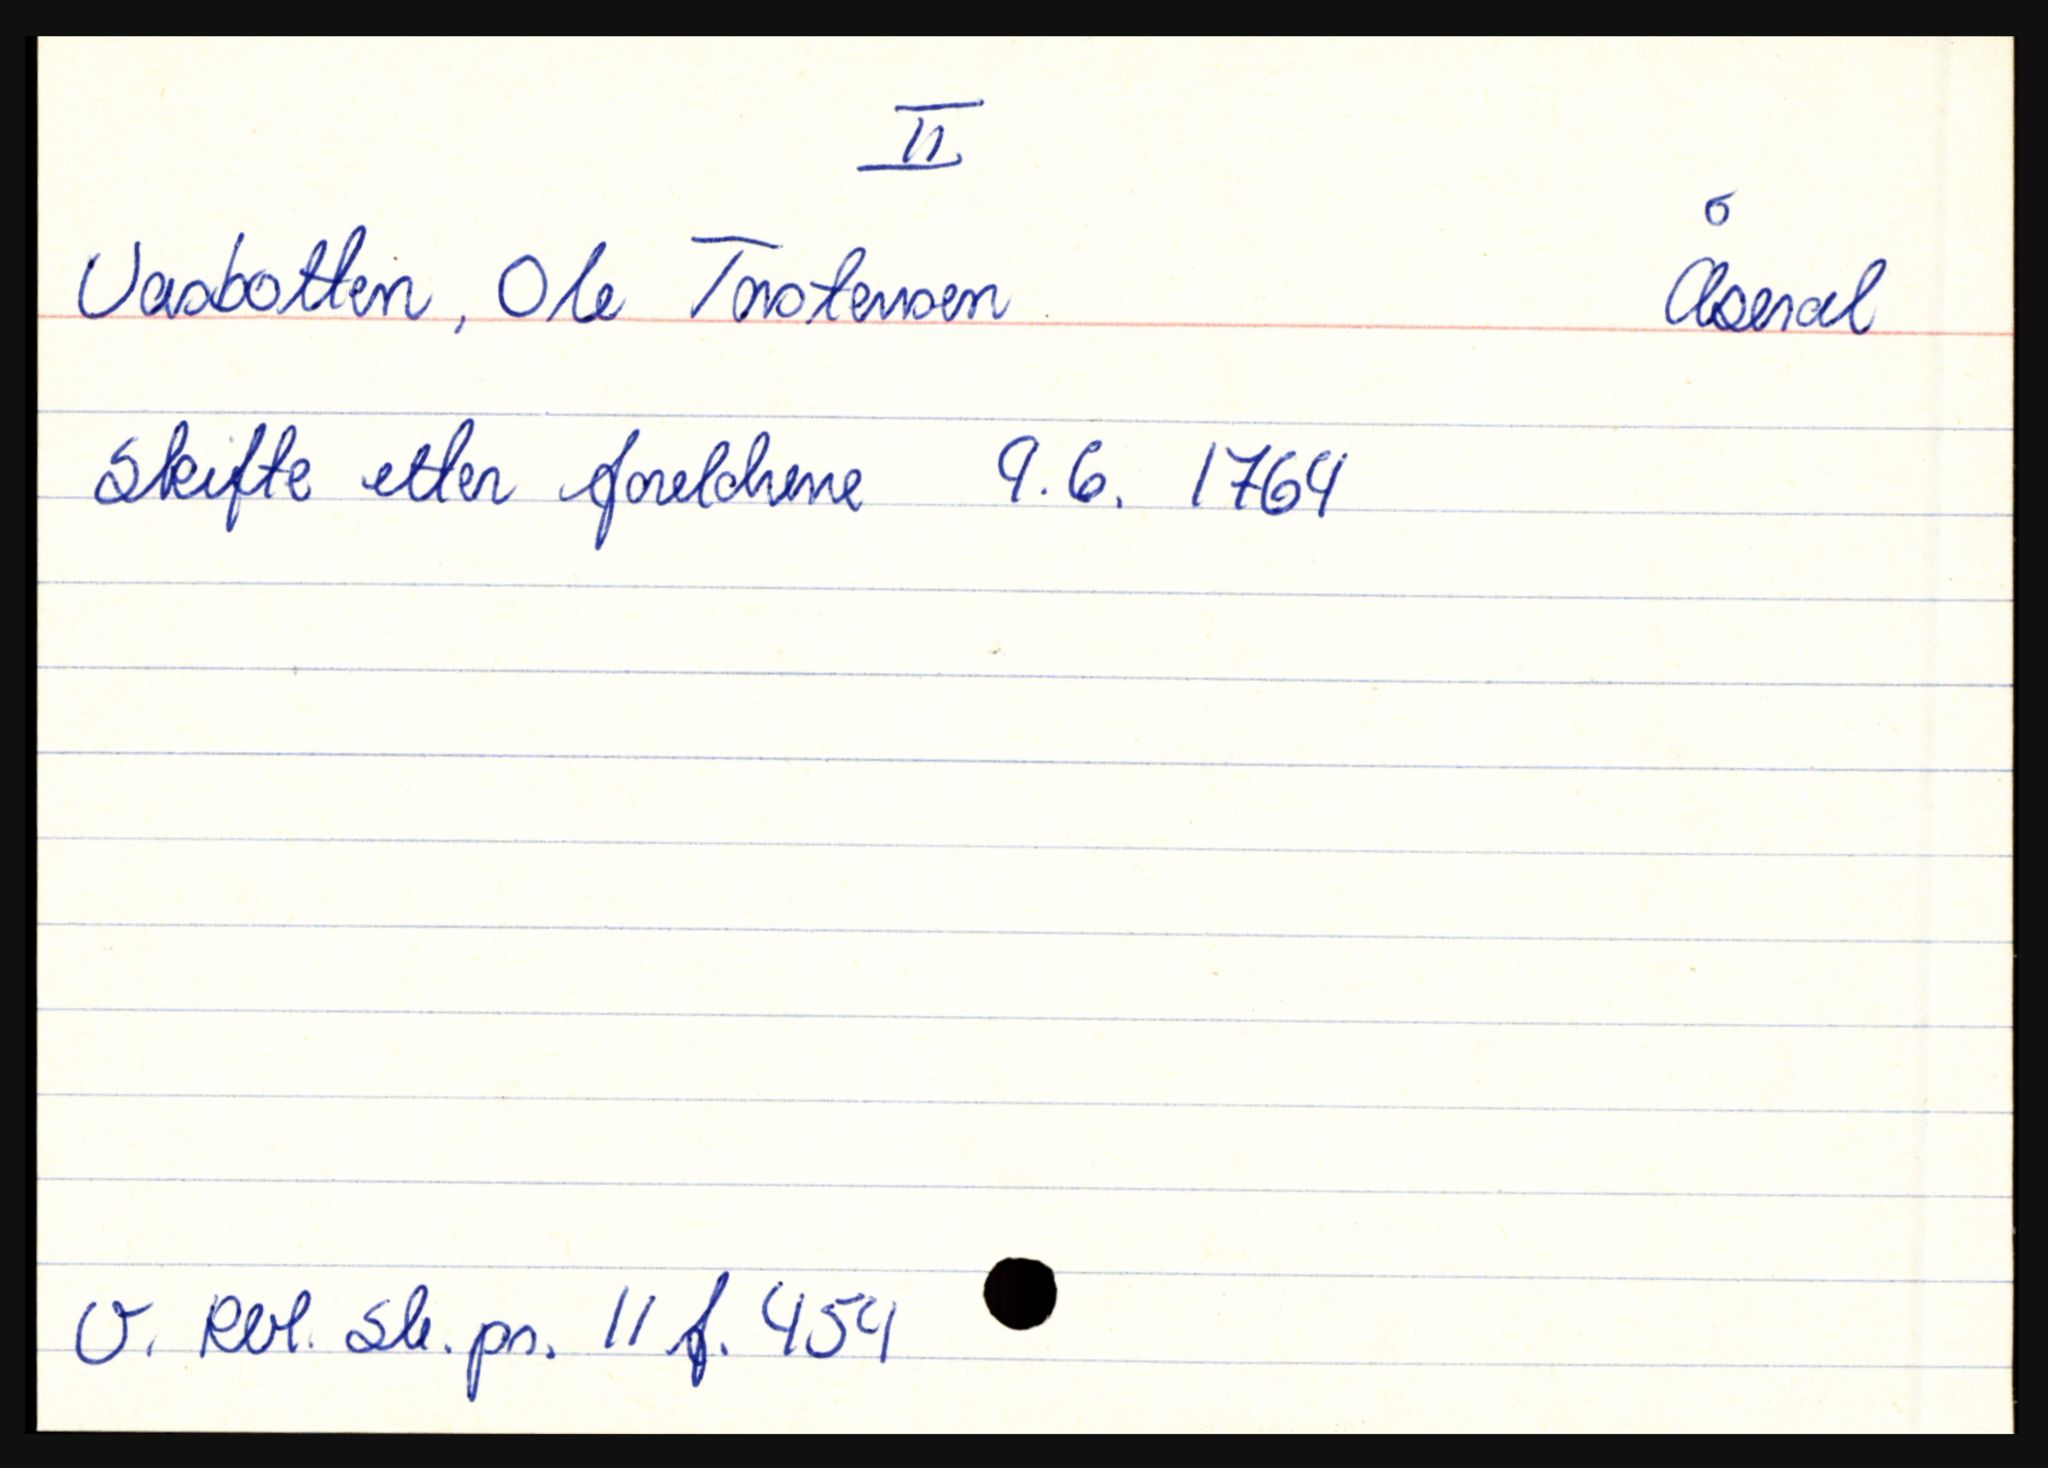 II
Vasbotten, Ole Torstensen Åseral
Skifte etter foreldrene 9.6. 1764
V. Rbl. Sk. pr. 11 f. 454